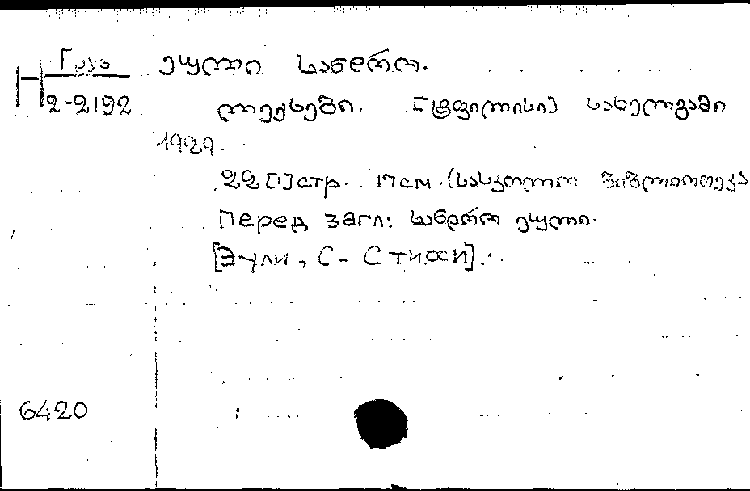 Гач
Н 2-2192
ეული სანდრო.
ლექსები. [ტფილისი] სახელგამი
1929.
22[1]стр. 17см. (სასკოლო ბიბლიოთეკა
Перед загл: სანდრო ეული.
[Эули, С- Стихи].
6420